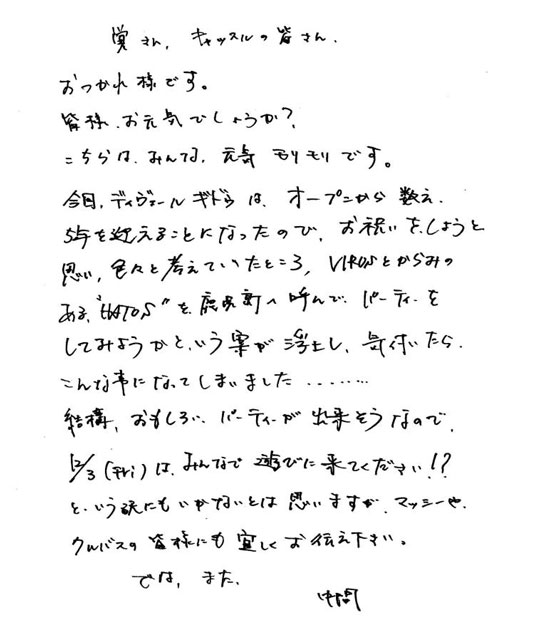 覚さん, キャッスルの皆さん.
おつかれ様です。
皆様、お元気でしょうか?
こちらは、みんな、元気モリモリです。
今日, ディヴェールギドウは、オープンから数え、
5年を迎えることになったので、お祝いをしようと
思い, 色々と考えていたところ, VIRUSとからみの
ある、"HATOS"を、鹿児島へ呼んで、パーティーを
してみようかという案が浮上し、気付いたら、
こんな事になってしまいました........
結構, おもしろい、パーティーが出来そうなので、
12/3 (Fri) は、みんなで遊びに来てください!?
という訳にもいかないとは思いますが、マッシーや、
クルバスの皆様にも宜しくお伝え下さい。
では, また.